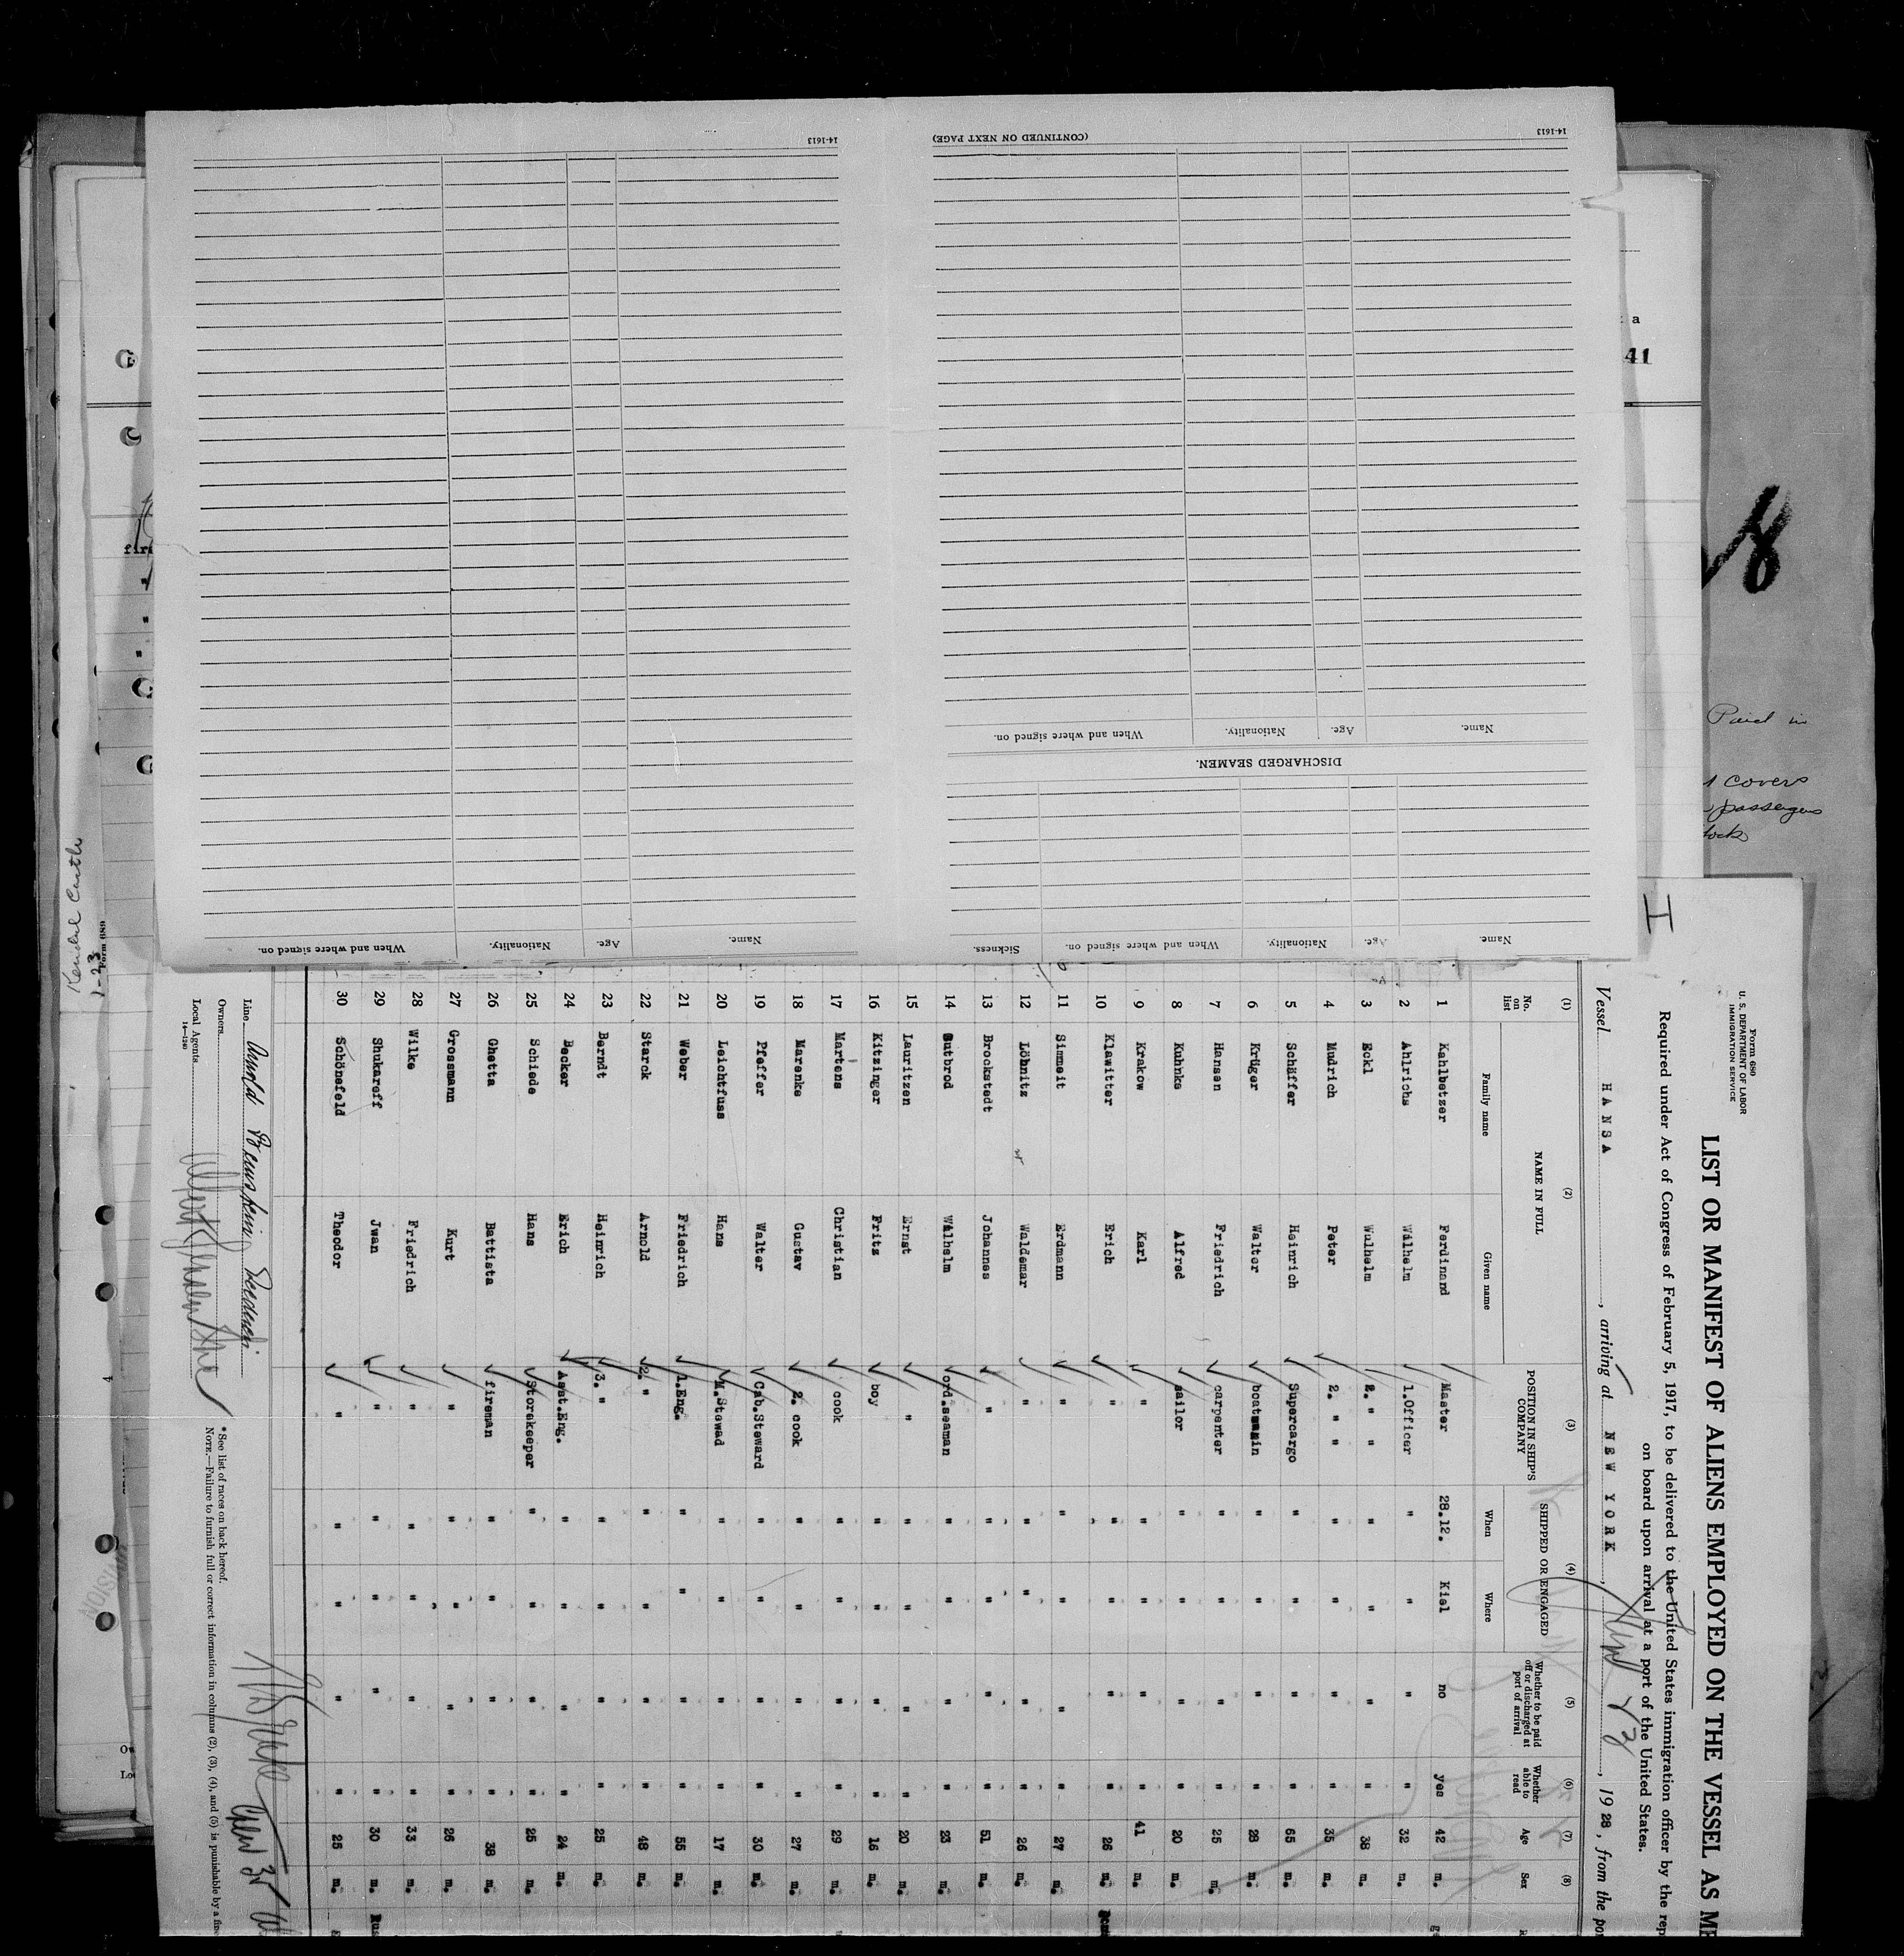 14-1613
(CONTINUED ON NEXT PAGE)
14-1613
Name.
Age.
Nationality.
When and where signed on.
DISCHARGED SEAMEN.
Name.
Age.
Nationality.
When and where signed on.
Sickness.
Name.
Age.
Nationality.
When and where signed on.
a
41
Paid in
covers
passengers
Kendal Castle
1-23
Form 689
Form 680
U. S. DEPARTMENT OF LABOR
IMMIGRATION SERVICE
LIST OR MANIFEST OF ALIENS EMPLOYED ON THE VESSEL AS ME
Required under Act of Congress of February 5, 1917, to be delivered to the United States immigration officer by the rep
on board upon arrival at a port of the United States.
Vessel HANSA, arriving at NEW YORK, 23, 1928, from the po
(1) (2) (3) (4) (5) (6) (7) (8)
No. on list NAME IN FULL POSITION IN SHIP'S COMPANY SHIPPED OR ENGAGED Whether to be paid off or discharged at port of arrival Whether able to read Age Sex
Family name Given name When Where
1 Kahlbetzer Ferdinand Master 28.12. Kiel no yes 42 m.
2 Ahlrichs Wilhelm 1.Officer " " " " 32 m.
3 Eckl Wulhelm 2. " " " " " " 38 m.
4 Mudrich Peter 2. " " " " " " 35 m.
5 Schäffer Heinrich Supercargo " " " " 65 m.
6 Krüger Walter boatsmain " " " " 28 m.
7 Hansen Friedrich carpenter " " " " 25 m.
8 Kuhnke Alfred sailor " " " " 20 m.
9 Krakow Karl " " " " " 41 m.
10 Klawitter Erich " " " " " 26 m.
11 Simmeit Erdmann " " " " " 27 m.
12 Löbnitz Waldemar " " " " " 26 m.
13 Brockstedt Johannes " " " " " 51 m.
14 Gutbrod Wilhelm ord.seaman " " " " 23 m.
15 Lauritzen Ernst " " " " " 20 m.
16 Kitzinger Fritz boy " " " " 16 m.
17 Martens Christian cook " " " " 29 m.
18 Marenke Gustav 2. cook " " " " 27 m.
19 Pfeffer Walter Cab.Steward " " " " 30 m.
20 Leichtfuss Hans M.Stewad " " " " 17 m.
21 Weber Friedrich 1.Eng. " " " " 55 m.
22 Starck Arnold 2. " " " " " 48 m.
23 Berndt Heinrich 3. " " " " " 25 m.
24 Becker Erich Asst.Eng. " " " " 24 m.
25 Schiede Hans Storekeeper " " " " 25 m.
26 Ghetta Battista fireman " " " " 38 m.
27 Grossmann Kurt " " " " " 26 m.
28 Wilke Friedrich " " " " " 33 m.
29 Shukareff Jwan " " " " " 30 m. Rus
30 Schönefeld Theodor " " " " " 25 m.
Line Arnold Bernstein Reederei
Owners
Local Agents
14-1240
*See list of races on back hereof.
NOTE.—Failure to furnish full or correct information in columns (2), (3), (4), and (5) is punishable by a fine